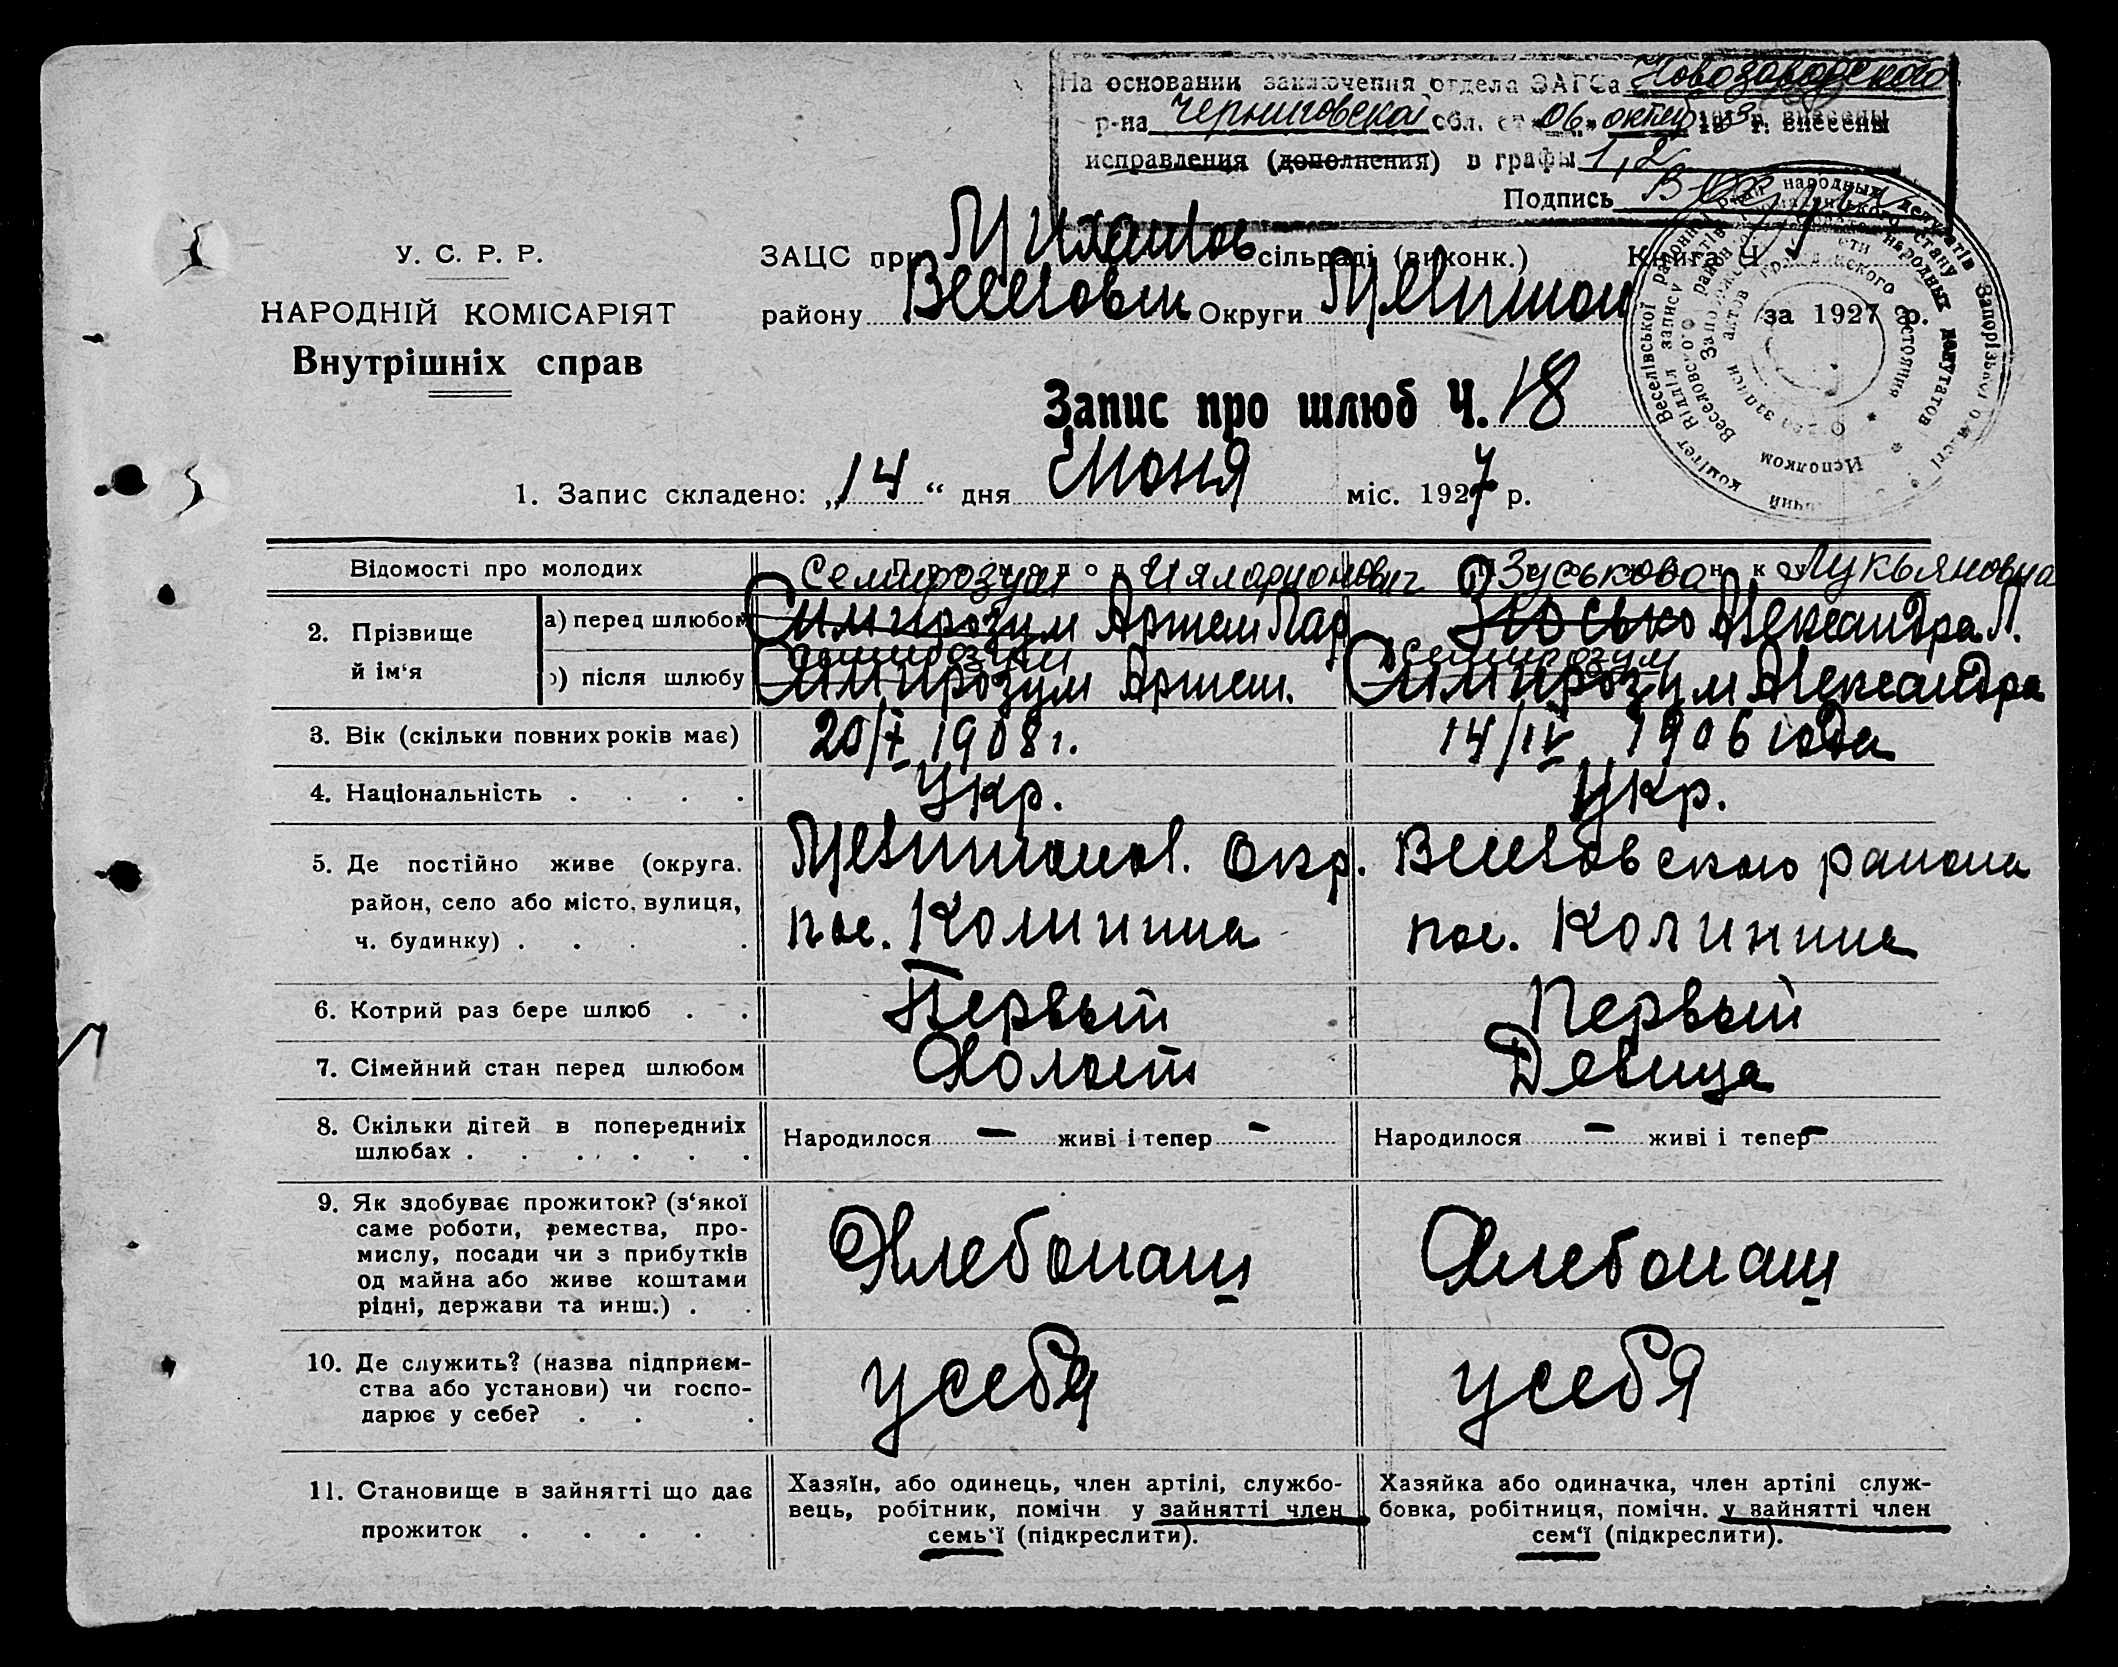 На основании заключения отдела ЗАГСа Новозаводского
р-на Черниговской обл. от "06" октяб 19 г. внесены
исправления (дополнения) в графы 1, 2
Подпись
У. С. Р. Р.
НАРОДНІЙ КОМІСАРІЯТ
Внутрішніх справ
ЗАЦС при Михайлов сільраді (виконк.) Книга Ч.
району Веселовск Округи Мелитоп за 1927 р.
Запис про шлюб Ч. 18
1. Запис складено: „14“ дня Июня міс. 1927 р.
Відомості про молодих
Семирозум Иларионович
Зуськова Лукьяновна
2. Прізвище й ім‘я
а) перед шлюбом
Симирозум Артем Лар
Зюсько Александра Л.
б) після шлюбу
Семирозум
Симирозум Артем.
Семирозум
Симирозум Александра
3. Вік (скільки повних років має)
20/X 1908 г.
14/IV 1906 года
4. Національність . . . .
Укр.
Укр.
5. Де постійно живе (округа, район, село або місто, вулиця, ч. будинку) . . . .
Мелитопол. Окр. Веселовского района
пос. Колинина
пос. Колинина
6. Котрий раз бере шлюб . .
Первый
Первый
7. Сімейний стан перед шлюбом
Холост
Девица
8. Скільки дітей в попередніх шлюбах . . . . . .
Народилося – живі і тепер –
Народилося – живі і тепер –
9. Як здобуває прожиток? (з‘якої
саме роботи, ремества, про-
мислу, посади чи з прибутків
од майна або живе коштами
рідні, держави та инш.) . .
Хлебопаш
Хлебопаш
10. Де служить? (назва підприєм-
ства або установи) чи госпо-
дарює у себе? . . .
у себя
у себя
11. Становище в зайнятті що дає
прожиток . . . . .
Хазяїн, або одинець, член артілі, службо-
вець, робітник, помічн у зайнятті член
семь‘ї (підкреслити).
Хазяйка або одиначка, член артілі служ-
бовка, робітниця, помічн. у зайнятті член
сем‘ї (підкреслити).